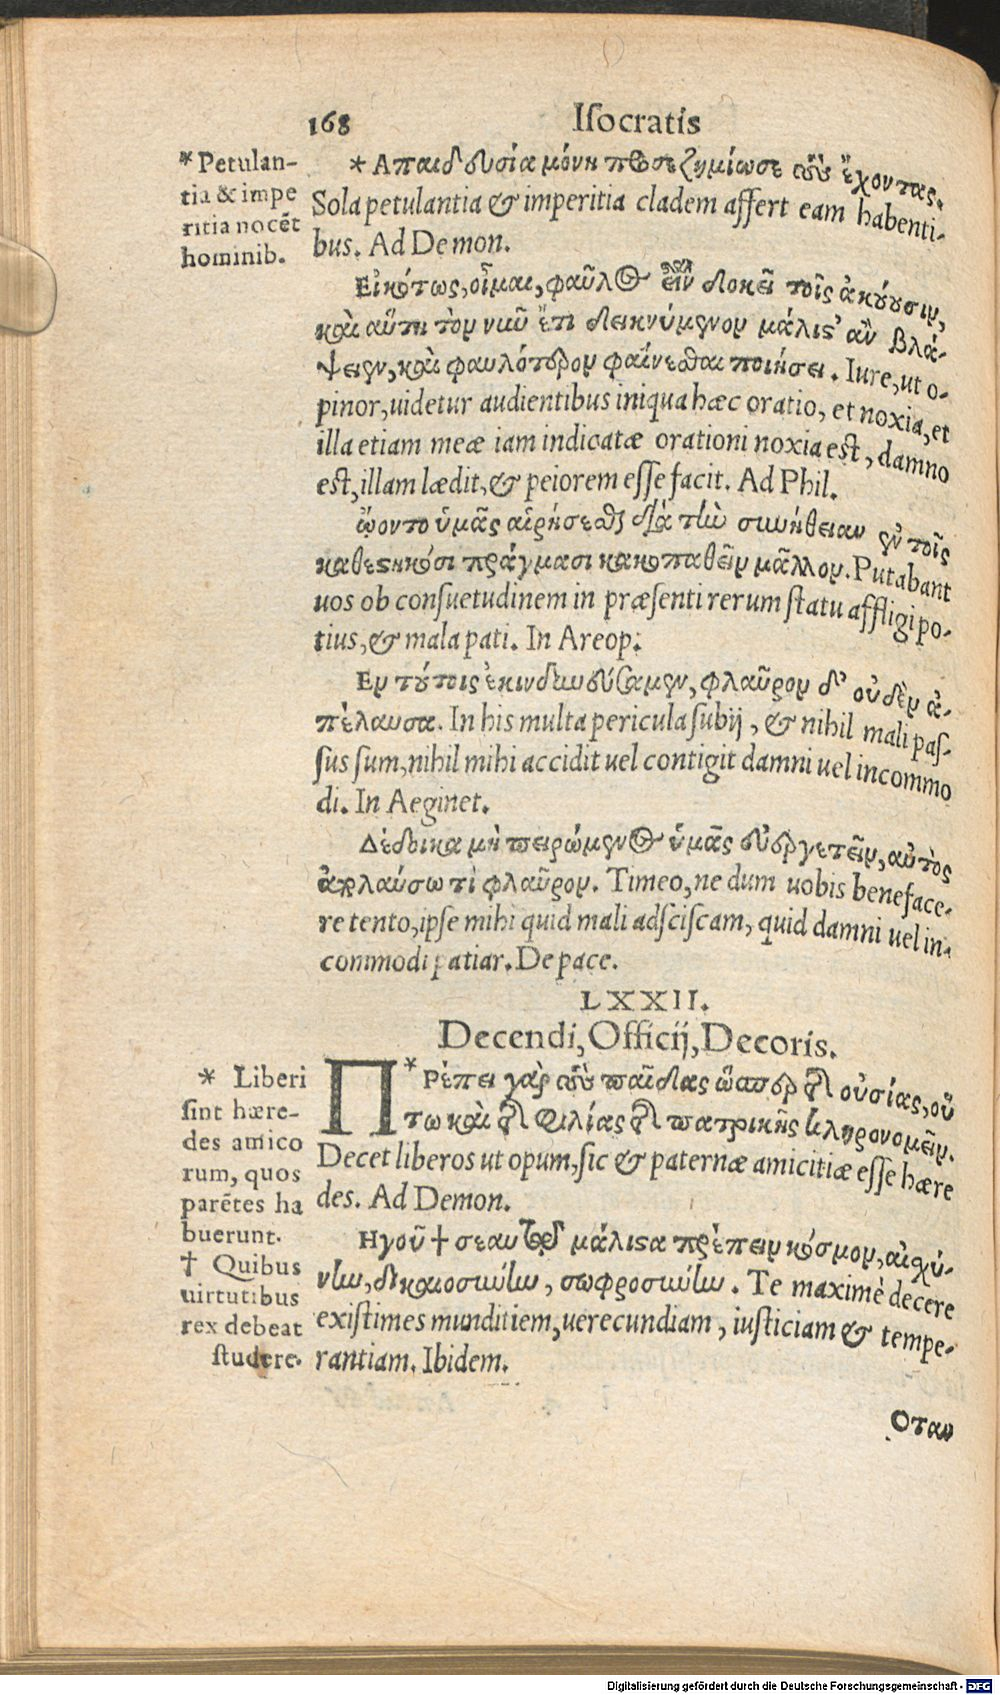 168 Isocratis
* Petulan-
tia & impe
ritia nocēt
hominib.
* Απαιδευσία μόνη προσεζημίωσε τοὺς ἔχοντας.
Sola petulantia & imperitia cladem affert eam habenti-
bus. Ad Demon.
Εἰκότως, οἶμαι, φαῦλος εἶναι δοκεῖ τοῖς ἀκούουσιν,
καὶ αὕτη τὸν νῦν ἔτι δεικνύμενον μάλιστ' ἂν βλά-
ψειεν, καὶ φαυλότερον φαίνεσθαι ποιήσει. Iure, ut o-
pinor, uidetur audientibus iniqua hæc oratio, et noxia, et
illa etiam meæ iam indicatæ orationi noxia est, damno
est, illam lædit, & peiorem esse facit. Ad Phil.
ᾤοντο ὑμᾶς αἱρήσεσθαι διὰ τὴν συνήθειαν ἐν τοῖς
καθεστηκόσι πράγμασι κακοπαθεῖν μᾶλλον. Putabant
uos ob consuetudinem in præsenti rerum statu affligi po-
tius, & mala pati. In Areop.
Εν τούτοις ἐκινδυνεύσαμεν, φλαῦρον δ' οὐδὲν ἀ-
πέλαυσα. In his multa pericula subij, & nihil mali pas-
sus sum, nihil mihi accidit uel contigit damni uel incommo
di. In Aeginet.
Δέδοικα μὴ πειρώμενος ὑμᾶς εὐεργετεῖν, αὐτὸς
ἀπολαύσω τὶ φλαῦρον. Timeo, ne dum uobis beneface-
re tento, ipse mihi quid mali adsciscam, quid damni uel in-
commodi patiar. De pace.
LXXII.
Decendi, Officij, Decoris.
* Liberi
sint hære-
des amico
rum, quos
parētes ha
buerunt.
† Quibus
uirtutibus
rex debeat
studere.
Π*Ρέπει γὰρ τοὺς παῖδας ὥσπερ τῆς οὐσίας, οὕ
τω καὶ τῆς φιλίας τῆς πατρικῆς κληρονομεῖν.
Decet liberos ut opum, sic & paternæ amicitiæ esse hære
des. Ad Demon.
Ηγοῦ † σεαυτῷ μάλιστα πρέπειν κόσμον, αἰσχύ-
νην, δικαιοσύνην, σωφροσύνην. Te maximè decere
existimes munditiem, uerecundiam, iusticiam & tempe-
rantiam. Ibidem.
Οταν
Digitalisierung gefördert durch die Deutsche Forschungsgemeinschaft - DFG